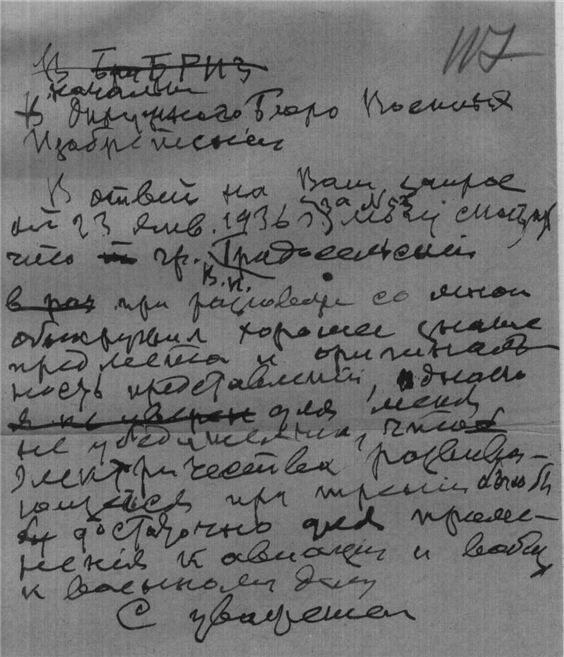 В БРИЗ
Начальн
В Окружного Бюро Военных
Изобретений
В ответ на Ваш запрос
от 23 янв. 1936 за № могу сообщить
что гр. Традосельский
В.И.
в раз при разговоре со мной
обнаружил хорошее знание
предмета и оригиналь
ность представлений, однако
я не уверен для меня
не убедительно, чтоб
электричества развива-
ющейся при трении было б
достаточно для приме-
нения к авиации и вообщ
к военному делу
С уважением